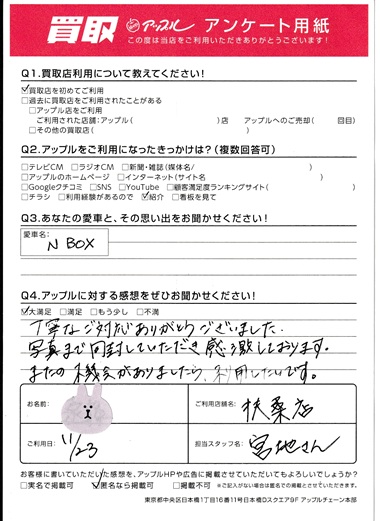 買取 アップル アンケート用紙
この度は当店をご利用いただきありがとうございます!
Q1.買取店利用について教えてください!
☑買取店を初めてご利用
□過去に買取店をご利用されたことがある
□アップル店をご利用
ご利用された店舗:アップル( )店 アップルへのご売却( 回目)
□その他の買取店( )
Q2.アップルをご利用になったきっかけは?(複数回答可)
□テレビCM □ラジオCM □新聞・雑誌(媒体名/ )
□アップルのホームページ □インターネット(サイト名 )
□Googleクチコミ □SNS □YouTube □顧客満足度ランキングサイト( )
□チラシ □利用経験があるので ☑紹介 □看板を見て
Q3.あなたの愛車と、その思い出をお聞かせください!
愛車名:
N BOX
Q4.アップルに対する感想をぜひお聞かせください!
☑大満足 □満足 □もう少し □不満
丁寧なご対応ありがとうございました。
写真まで同封していただき感激しております。
またの機会がありましたら、利用したいです。
お名前:
ご利用店舗名:
扶桑店
ご利用日:
11/23
担当スタッフ名:
宮地さん
お客様に書いていただいた感想を、アップルHPや広告に掲載させていただいてもよろしいでしょうか?
□実名で掲載可 ☑匿名なら掲載可 □掲載不可 ※ご記入がない場合は匿名での掲載とさせていただきます。
東京都中央区日本橋1丁目16番11号日本橋Dスクエア9F アップルチェーン本部